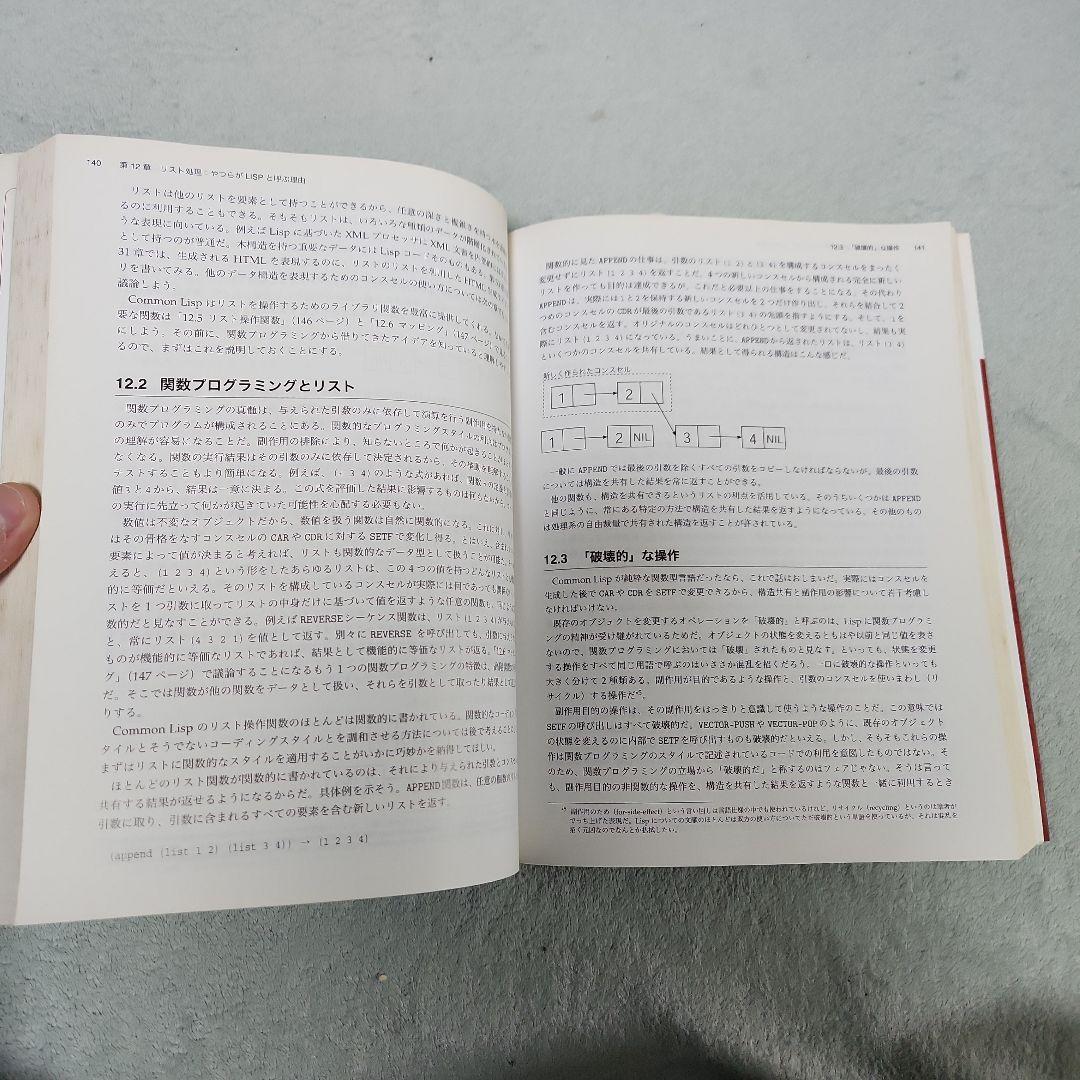 140 第12章 リスト処理：やつらがLISPと呼ぶ理由
リストは他のリストを要素として持つことができるから、任意の深さと複雑さを持つ
るのに利用することもできる。そもそもリストは、いろいろな種類のデータが階層化
うな表現に向いている。例えば Lisp に基づいた XML プロセッサは XML 文書を内部
として持つのが普通だ。木構造を持つ重要なデータには Lisp コードそのものもある。
31 章では、生成される HTML を表現するのに、リストのリストを利用した HTML
リを書いてみる。他のデータ構造を表現するためのコンスセルの使い方については次の
議論しよう。
Common Lisp はリストを操作するためのライブラリ関数を豊富に提供してくれる。
要な関数は「12.5 リスト操作関数」(146 ページ) と「12.6 マッピング」(147 ページ)
にしよう。その前に、関数プログラミングから借りてきたアイデアを知っていると
るので、まずはこれを説明しておくことにする。
12.2 関数プログラミングとリスト
関数プログラミングの真髄は、与えられた引数のみに依存して演算を行う副作用を
のみでプログラムが構成されることにある。関数的なプログラミングスタイルの
の理解が容易になることだ。副作用の排除により、知らないところで何かが起きることが
なくなる。関数の実行結果はその引数のみに依存して決定されるから、その挙動を
テストすることもより簡単になる。例えば、(+ 3 4) のような式があれば、関数 + の定義と
値 3 と 4 から、結果は一意に決まる。この式を評価した結果に影響するものは
の実行に先立って何かが起きていた可能性を心配する必要もない。
数値は不変なオブジェクトだから、数値を扱う関数は自然に関数的になる。これに対し
はその骨格をなすコンスセルの CAR や CDR に対する SETF で変化し得る。とはいえ、
要素によって値が決まると考えれば、リストも関数的なデータ型として扱うことが可能だ。
えると、(1 2 3 4) という形をしたあらゆるリストは、この 4 つの値を持つどんなリスト
的に等価だといえる。そのリストを構成しているコンスセルが実際には何であっても
ストを 1 つ引数に取ってリストの中身だけに基づいて値を返すような任意の関数も、
数的だと見なすことができる。例えば REVERSE シーケンス関数は、リスト (1 2 3 4) が
と、常にリスト (4 3 2 1) を値として返す。別々に REVERSE を呼び出しても、引数に
ものが機能的に等価なリストであれば、結果として機能的に等価なリストが返る。「12.6
グ」(147 ページ) で議論することになるもう 1 つの関数プログラミングの特徴は、
だ。そこでは関数が他の関数をデータとして扱い、それらを引数として取ったり結果として
りする。
Common Lisp のリスト操作関数のほとんどは関数的に書かれている。関数的なコーディ
タイルとそうでないコーディングスタイルとを調和させる方法については後で考えること
まずはリストに関数的なスタイルを適用することがいかに巧妙かを納得してほしい。
ほとんどのリスト関数が関数的に書かれているのは、それにより与えられた引数とコンス
共有する結果が返せるようになるからだ。具体例を示そう。APPEND 関数は、任意の個数の
引数に取り、引数に含まれるすべての要素を含む新しいリストを返す。
(append (list 1 2) (list 3 4)) → (1 2 3 4)
12.3 「破壊的」な操作 141
関数的に見た APPEND の仕事は、引数のリスト (1 2) と (3 4) を構成するコンスセルをまったく
変更せずにリスト (1 2 3 4) を返すことだ。4 つの新しいコンスセルから構成される完全に新しい
リストを作っても目的は達成できるが、これだと必要以上の仕事をすることになる。その代わり
APPEND は、実際には 1 と 2 を保持する新しいコンスセルを 2 つだけ作り出し、それらを結合して 2
つめのコンスセルの CDR が最後の引数であるリスト (3 4) の先頭を指すようにする。そして、1 を
含むコンスセルを返す。オリジナルのコンスセルはどれひとつとして変更されてないし、結果も実
際にリスト (1 2 3 4) になっている。うまいことに、APPEND から返されたリストは、リスト (3 4)
といくつかのコンスセルを共有している。結果として得られる構造はこんな感じだ。
新しく作られたコンスセル
1 2
1 2 NIL 3 4 NIL
一般に APPEND では最後の引数を除くすべての引数をコピーしなければならないが、最後の引数
については構造を共有した結果を常に返すことができる。
他の関数も、構造を共有できるというリストの利点を活用している。そのうちいくつかは APPEND
と同じように、常にある特定の方法で構造を共有した結果を返すようになっている。その他のもの
は処理系の自由裁量で共有された構造を返すことが許されている。
12.3 「破壊的」な操作
Common Lisp が純粋な関数型言語だったなら、これで話はおしまいだ。実際にはコンスセルを
生成した後で CAR や CDR を SETF で変更できるから、構造共有と副作用の影響について若干考慮し
なければいけない。
既存のオブジェクトを変更するオペレーションを「破壊的」と呼ぶのは、Lisp に関数プログラミ
ングの精神が受け継がれているためだ。オブジェクトの状態を変えるともはや以前と同じ値を表さ
ないので、関数プログラミングにおいては「破壊」されたものと見なす。といっても、状態を変更
する操作をすべて同じ用語で呼ぶのはいささか混乱を招くだろう。一口に破壊的な操作といっても
大きく分けて 2 種類ある。副作用が目的であるような操作と、引数のコンスセルを使いまわし（リ
サイクル）する操作だ*5。
副作用目的の操作は、その副作用をはっきりと意識して使うような操作のことだ。この意味では
SETF の呼び出しはすべて破壊的だ。VECTOR-PUSH や VECTOR-POP のように、既存のオブジェクト
の状態を変えるのに内部で SETF を呼び出すものも破壊的だといえる。しかし、そもそもこれらの操
作は関数プログラミングのスタイルで記述されているコードでの利用を意図したものではない。そ
のため、関数プログラミングの立場から「破壊的だ」と称するのはフェアじゃない。そうは言って
も、副作用目的の非関数的な操作を、構造を共有した結果を返すような関数と一緒に利用するとき
*5 副作用のため (for-side-effect) という言い回しは言語仕様の中でも使われているけれど、リサイクル (recycling) というのは筆者が
でっち上げた表現だ。Lisp についての文献のほとんどは